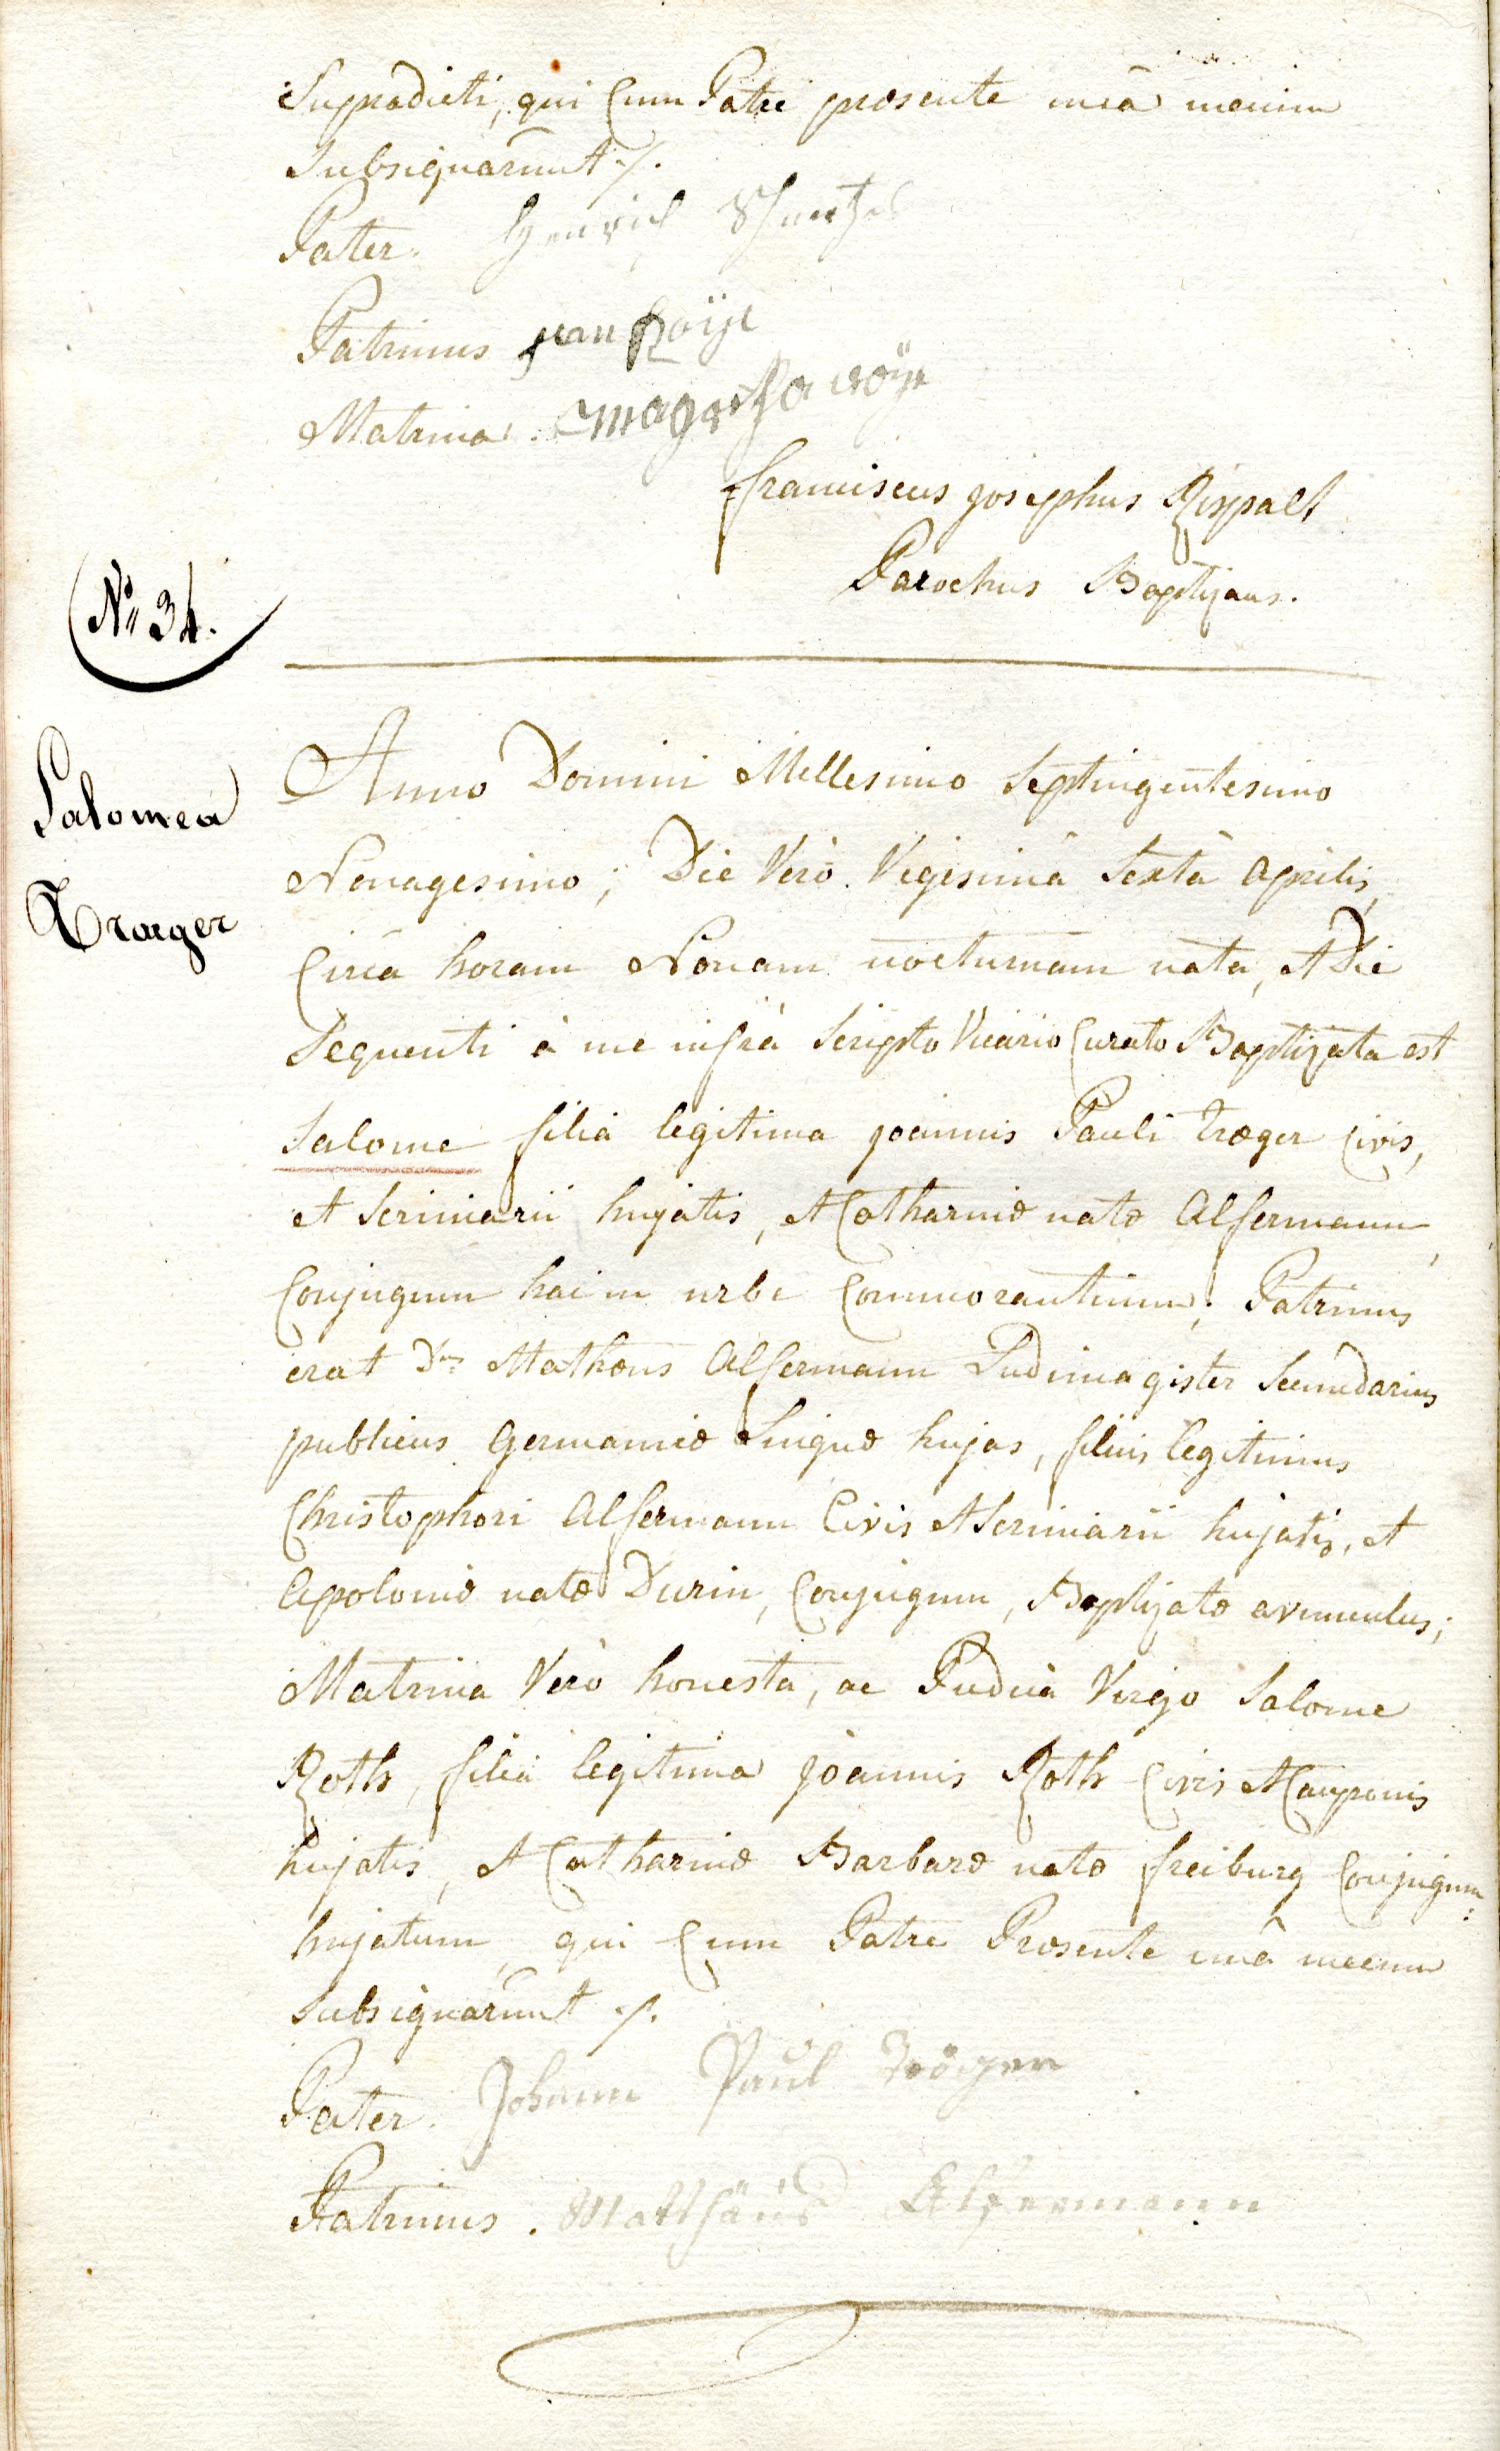 Supradicti, qui Cum Patre præsente unà mecum
subsignarunt ./.
Pater. Henrich
Patrinus
Matrina.
franciscus josephus Rispalt
Parochus Baptizans.
N° 34.
Salomea
Traeger
Anno Domini Millesimo Septingentesimo
Nonagesimo; Die Verò Vigesimâ Sextâ aprilis,
Circa horam Nonam nocturnam nata, et Die
Sequenti à me infrà Scripto Vicario Curato Baptizata est
Salome filia legitima joannis Pauli træger Civis,
et Scriniarii hujatis, et Catharinæ natæ Alfermann,
Conjugum hac in urbe Commorantium; Patrinus
erat Dns Mathæus Alfermann Ludimagister Secundarius
publicus Germanicæ Linguæ hujas, filius legitimus
Christophori Alfermann Civis et Scriniarii hujatis, et
Apoloniæ natæ Durin, Conjugum, Baptizatæ avunculus;
Matrina Verò honesta, ac Pudica Virgo Salome
Roth, filia legitima joannis Roth Civis et Cauponis
hujatis, et Catharinæ Barbaræ natæ freiburg Conjugum
hujatum, qui Cum Patre Præsente unâ mecum
subsignarunt ./.
Pater. Johann Paul Tröger
Patrinus. Matthäus Alfermann